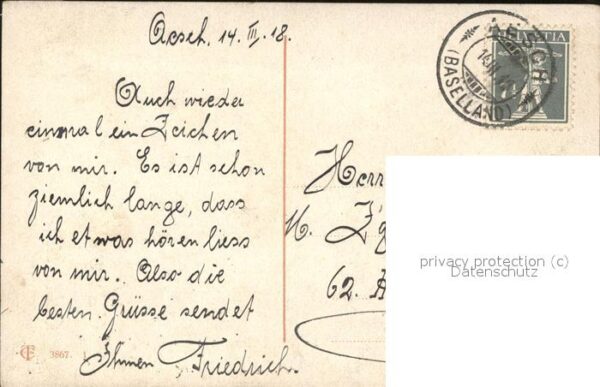 Aesch, 14. III. 18.
Auch wieder
einmal ein Zeichen
von mir. Es ist schon
ziemlich lange, dass
ich etwas hören liess
von mir. Also die
besten Grüsse sendet
Ihnen Friedrich.
3867.
AESCH
(BASELLAND)
HELVETIA
Herr
62.
privacy protection (c)
Datenschutz